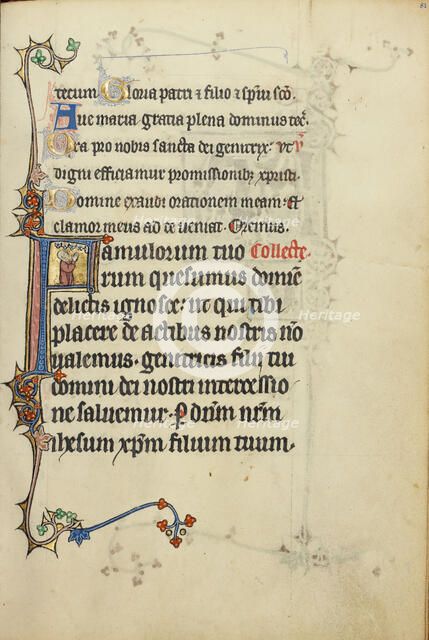 82
tecum Gloria patri ⁊ filio ⁊ sp̄ui sc̄o.
Aue maria gratia plena dominus tec̄.
Ora pro nobis sancta dei genitrix: vt
digni efficiamur promissionib; xpristi.
Domine exaudi orationem meam: Et
clamor meus ad te ueniat. Oremus.
Famulorum tuo Collecte.
rum quesumus domīe
delictis ignosce: ut qui tibi
placere de actibus nostris nō
ualemus. genitricis filii tui
domini dei nostri intercessio
ne saluemur. P dn̄m nr̄m
ihesum xp̄m filium tuum.
Heritage
Heritage
Heritage
Heritage
Heritage